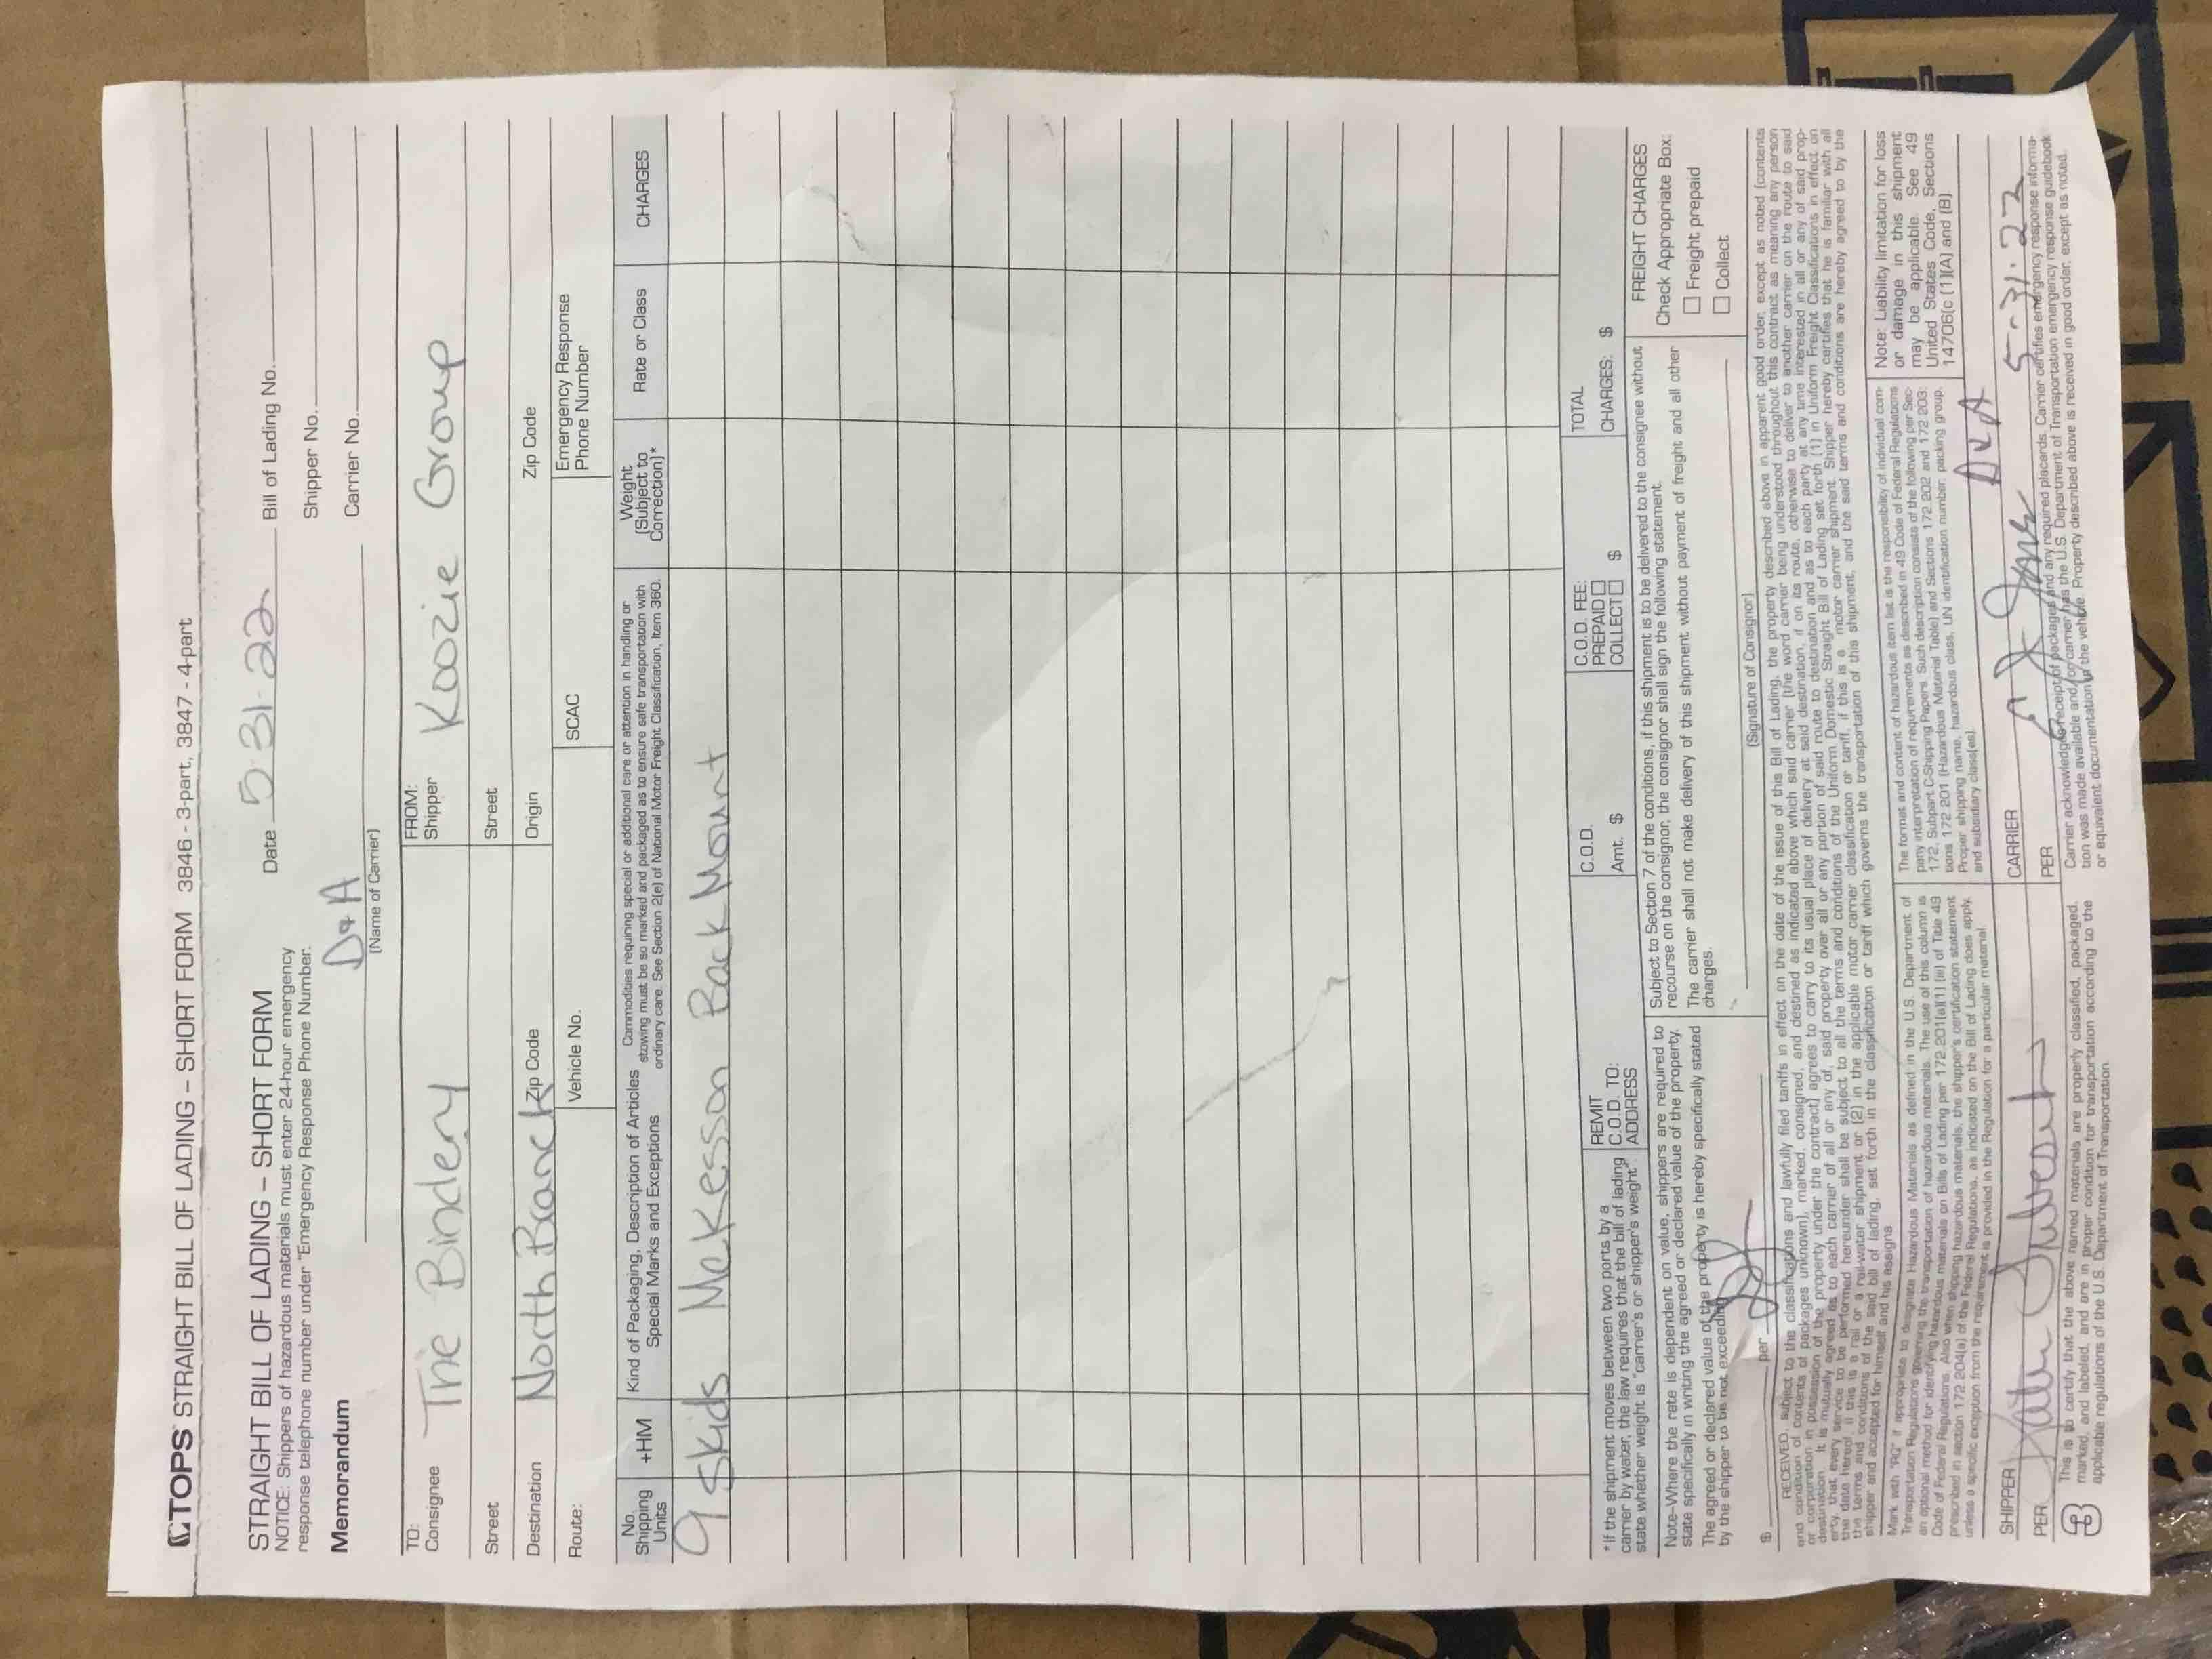 TOPS STRAIGHT BILL OF LADING – SHORT FORM 3846 - 3-part, 3847 - 4-part
STRAIGHT BILL OF LADING – SHORT FORM
NOTICE: Shippers of hazardous materials must enter 24-hour emergency
response telephone number under "Emergency Response Phone Number.
Date 5-31-22 Bill of Lading No.
Shipper No.
Carrier No.
Memorandum
D+A
(Name of Carrier)
TO:
Consignee The Bindery
FROM:
Shipper Koozie Group
Street
Street
Destination North Branch Zip Code
Origin
Zip Code
Route:
Vehicle No.
SCAC
Emergency Response
Phone Number
No.
Shipping
Units
+HM
Kind of Packaging, Description of Articles
Special Marks and Exceptions
Commodities requiring special or additional care or attention in handling or
stowing must be so marked and packaged as to ensure safe transportation with
ordinary care. See Section 2(e) of National Motor Freight Classification, Item 360.
Weight
(Subject to
Correction)*
Rate or Class
CHARGES
9 skids McKesson Back Mount
*If the shipment moves between two ports by a
carrier by water, the law requires that the bill of lading
state whether weight is "carrier's or shipper's weight".
REMIT
C.O.D. TO:
ADDRESS
C.O.D.
Amt. $
C.O.D. FEE:
PREPAID
COLLECT $
TOTAL
CHARGES: $
Note-Where the rate is dependent on value, shippers are required to
state specifically in writing the agreed or declared value of the property.
The agreed or declared value of the property is hereby specifically stated
by the shipper to be not exceeding
$ per
Subject to Section 7 of the conditions, if this shipment is to be delivered to the consignee without
recourse on the consignor, the consignor shall sign the following statement.
The carrier shall not make delivery of this shipment without payment of freight and all other
charges.
(Signature of Consignor)
FREIGHT CHARGES
Check Appropriate Box:
Freight prepaid
Collect
RECEIVED, subject to the classifications and lawfully filed tariffs in effect on the date of the issue of this Bill of Lading, the property described above in apparent good order, except as noted (contents
and condition of contents of packages unknown), marked, consigned, and destined as indicated above which said carrier (the word carrier being understood throughout this contract as meaning any person
or corporation in possession of the property under the contract) agrees to carry to its usual place of delivery at said destination, if on its route, otherwise to deliver to another carrier on the route to said
destination. It is mutually agreed as to each carrier of all or any of, said property over all or any portion of said route to destination and as to each party at any time interested in all or any of said prop-
erty, that every service to be performed hereunder shall be subject to all the terms and conditions of the Uniform Domestic Straight Bill of Lading set forth (1) in Uniform Freight Classifications in effect on
the date hereof, if this is a rail or a rail-water shipment or (2) in the applicable motor carrier classification or tariff, if this is a motor carrier shipment. Shipper hereby certifies that he is familiar with all
the terms and conditions of the said bill of lading, set forth in the classification or tariff which governs the transportation of this shipment, and the said terms and conditions are hereby agreed to by the
shipper and accepted for himself and his assigns
Mark with "RQ" if appropriate to designate Hazardous Materials as defined in the U.S. Department of
Transportation Regulations governing the transportation of hazardous materials. The use of this column is
an optional method for identifying hazardous materials on Bills of Lading per 172.201(a)(1) (iii) of Title 49
Code of Federal Regulations. Also when shipping hazardous materials, the shipper's certification statement
prescribed in section 172.204(a) of the Federal Regulations, as indicated on the Bill of Lading does apply,
unless a specific exception from the requirement is provided in the Regulation for a particular material.
The format and content of hazardous item list is the responsibility of individual com-
pany interpretation of requirements as described in 49 Code of Federal Regulations
172, Subpart C-Shipping Papers. Such description consists of the following per Sec-
tions 172.201 (Hazardous Material Table) and Sections 172.202 and 172.203:
Proper shipping name, hazardous class, UN identification number, packing group,
and subsidiary class(es).
Note: Liability limitation for loss
or damage in this shipment
may be applicable. See 49
United States Code, Sections
14706(c (1)(A) and (B).
SHIPPER
PER
CARRIER D+A
PER 5-31-22
This is to certify that the above named materials are properly classified, packaged,
marked, and labeled, and are in proper condition for transportation according to the
applicable regulations of the U.S. Department of Transportation.
Carrier acknowledges receipt of packages and any required placards. Carrier certifies emergency response informa-
tion was made available and/or carrier has the U.S. Department of Transportation emergency response guidebook
or equivalent documentation in the vehicle. Property described above is received in good order, except as noted.